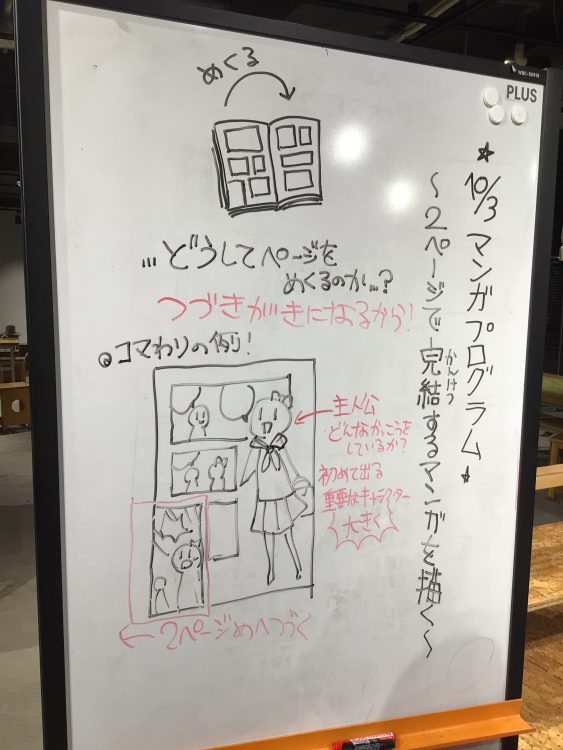 ★10/3 マンガプログラム★
〜2ページで完結するマンガを描く〜
かんけつ
めくる
…どうしてページを
めくるのか…?
つづきがきになるから!
コマわりの例!
主人公
どんなかっこうを
しているか?
初めて出る
重要なキャラクター
大きく
←2ページめへつづく
PLUS